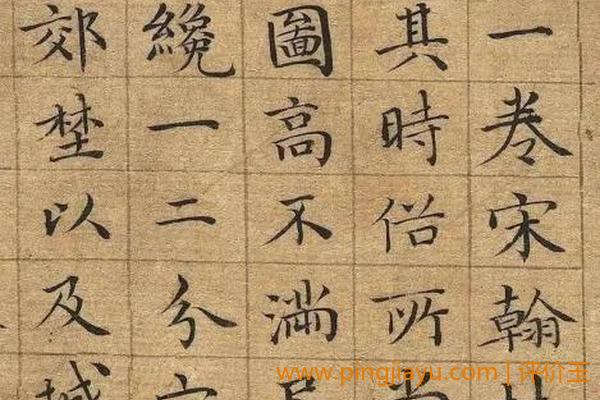 一卷宋翰
其時俗所
圖高不滿
纔一二分
郊埜以及城
www.pingjiayu.com | 评价